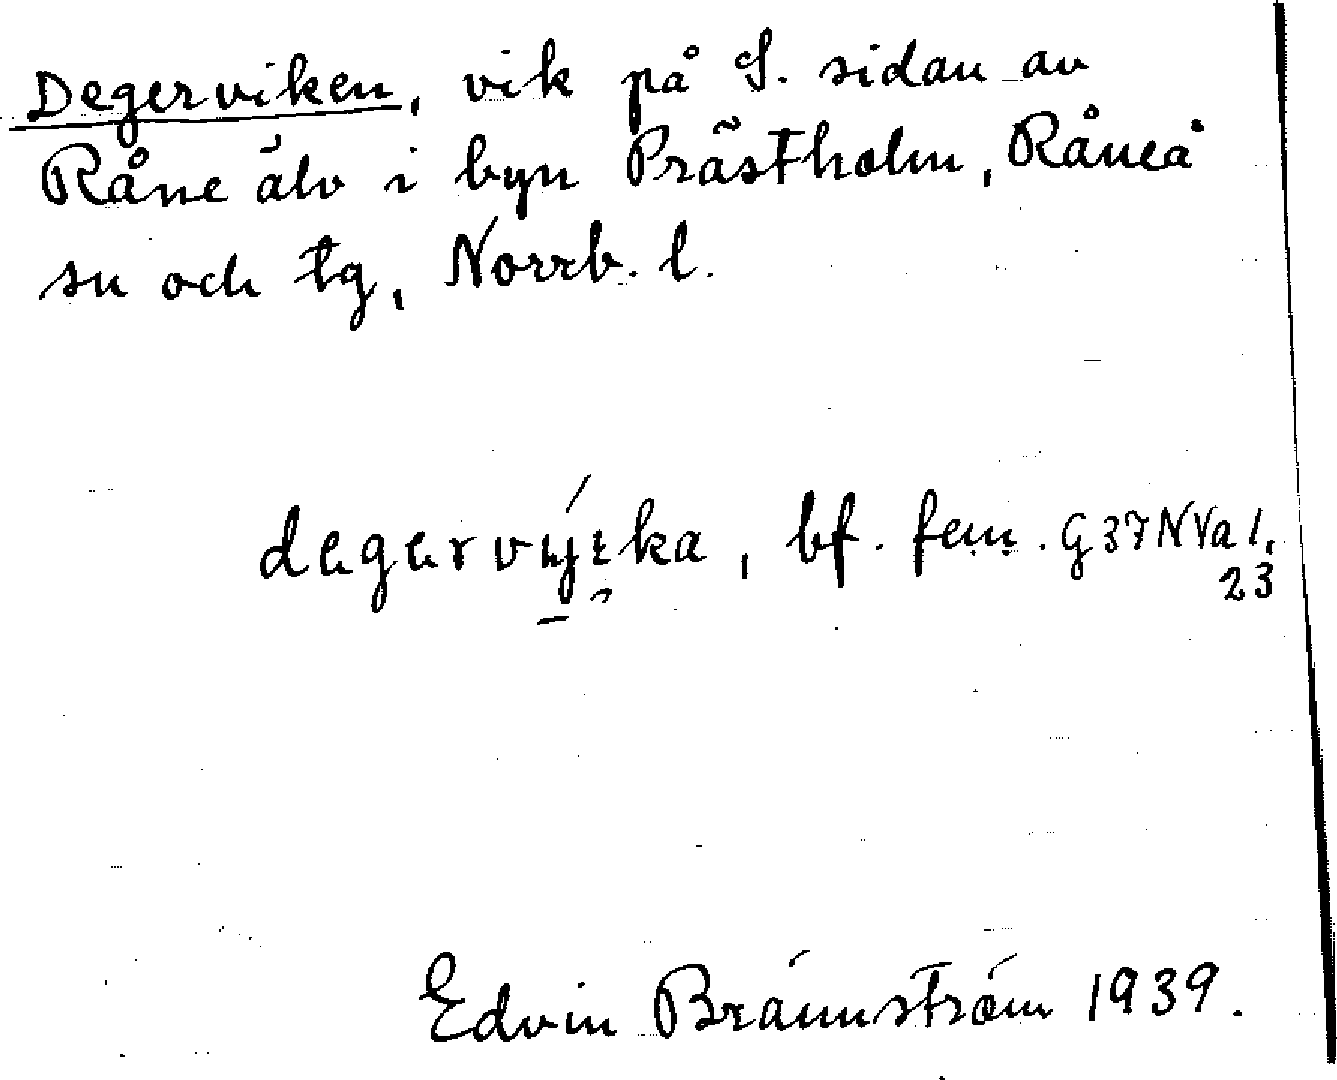 Degerviken, vik på S. sidan av
Råne älv i byn Prästholm, Råneå
sn och tg, Norrb. l.
degervyɪka, bf. fem. G37NVa1,
23
Edvin Brännström 1939.